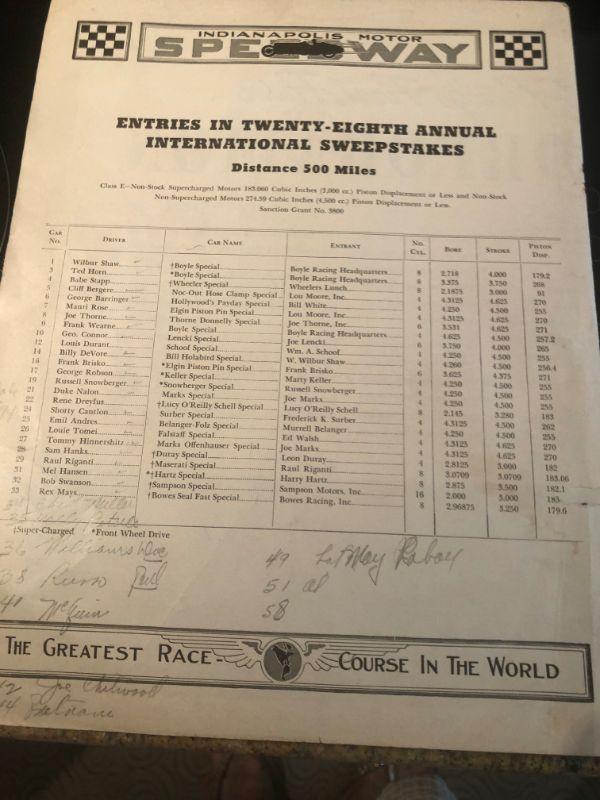 INDIANAPOLIS MOTOR
SPEEDWAY
ENTRIES IN TWENTY-EIGHTH ANNUAL
INTERNATIONAL SWEEPSTAKES
Distance 500 Miles
Class E—Non-Stock Supercharged Motors 183.060 Cubic Inches (3,000 cc.) Piston Displacement or Less and Non-Stock
Non-Supercharged Motors 274.59 Cubic Inches (4,500 cc.) Piston Displacement or Less.
Sanction Grant No. 3800
CAR No. DRIVER CAR NAME ENTRANT No. CYL. BORE STROKE PISTON DISP.
1 Wilbur Shaw †Boyle Special Boyle Racing Headquarters 8 2.718 4.000 179.2
3 Ted Horn *Boyle Special Boyle Racing Headquarters 8 3.375 3.750 268
4 Babe Stapp †Wheeler Special Wheelers Lunch 8 2.1875 3.000 91
5 Cliff Bergere Noc-Out Hose Clamp Special Lou Moore, Inc. 4 4.3125 4.625 270
6 George Barringer Hollywood's Payday Special Bill White 4 4.250 4.500 255
7 Mauri Rose Elgin Piston Pin Special Lou Moore, Inc. 4 4.3125 4.625 270
8 Joe Thorne Thorne Donnelly Special Joe Thorne, Inc. 6 3.531 4.625 271
9 Frank Wearne Boyle Special Boyle Racing Headquarters 4 4.500 257.2
10 Geo. Connor Lencki Special Joe Lencki 6 3.750 4.000 265
12 Louis Durant Schoof Special Wm. A. Schoof 4 4.250 4.500 255
14 Billy DeVore Bill Holabird Special W. Wilbur Shaw 4 4.260 4.500 256.4
16 Frank Brisko *Elgin Piston Pin Special Frank Brisko 6 3.625 4.375 271
17 George Robson *Keller Special Marty Keller 4 4.250 4.500 255
19 Russell Snowberger *Snowberger Special Russell Snowberger 4 4.250 4.500 255
21 Duke Nalon Marks Special Joe Marks 4 4.250 4.500 255
22 Rene Dreyfus †Lucy O'Reilly Schell Special Lucy O'Reilly Schell 8 2.145 3.280 183
24 Shorty Cantlon Surber Special Frederick K. Surber 4 4.3125 4.500 262
25 Emil Andres Belanger-Folz Special Murrell Belanger 4 4.250 4.500 255
26 Louie Tomei Falstaff Special Ed Walsh 4 4.3125 4.625 270
27 Tommy Hinnershitz Marks Offenhauser Special Joe Marks 4 4.3125 4.625 270
28 Sam Hanks †Duray Special Leon Duray 4 2.8125 3.000 182
29 Raul Riganti †Maserati Special Raul Riganti 8 3.0709 3.0709 183.06
31 Mel Hansen *†Hartz Special Harry Hartz 8 2.875 3.500 182.1
32 Bob Swanson †Sampson Special Sampson Motors, Inc. 16 2.000 3.000 183
33 Rex Mays †Bowes Seal Fast Special Bowes Racing, Inc. 8 2.96875 3.250 179.6
†Super-Charged *Front Wheel Drive
36 49
38 Russo Paul 51 al
41 58
THE GREATEST RACE- COURSE IN THE WORLD
Joe Chitwood